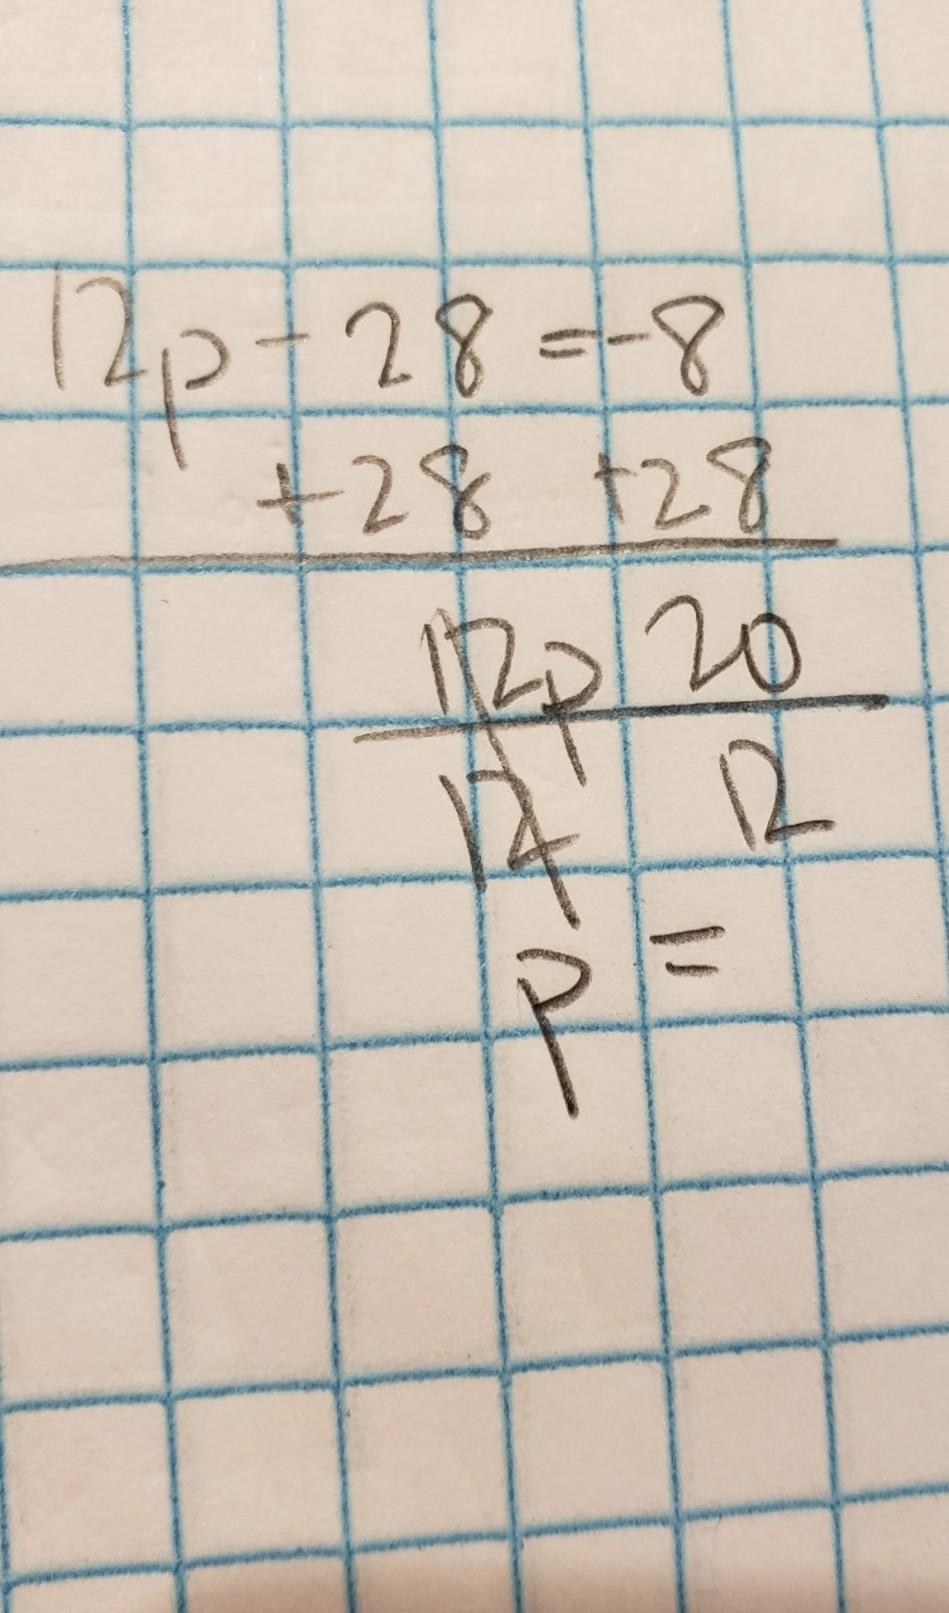 12p - 28 = -8
+28 +28
12p 20
12 12
p =